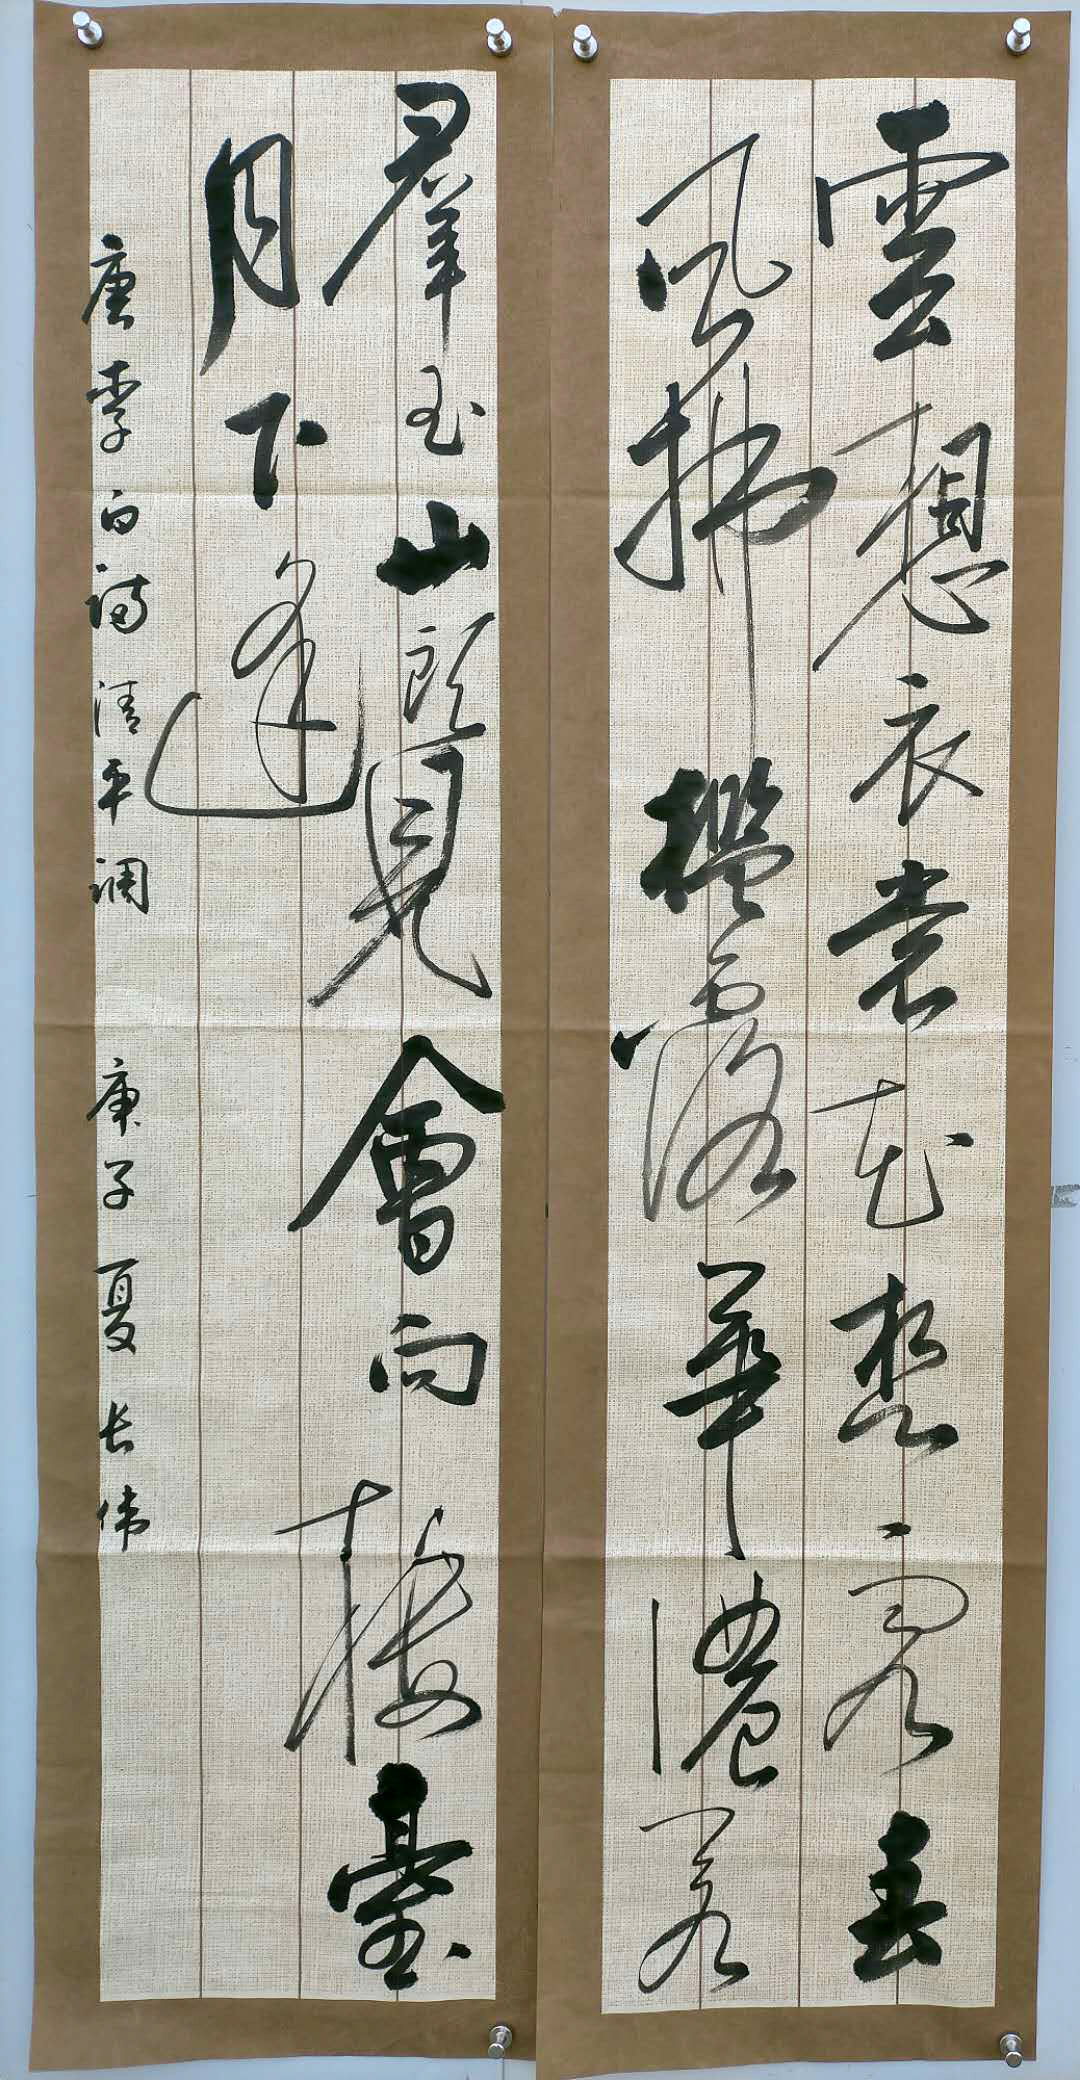 雲想衣裳花想容春
風拂檻露華濃若
羣玉山頭見會向樓臺
月下逢
唐李白诗清平调 庚子夏长伟